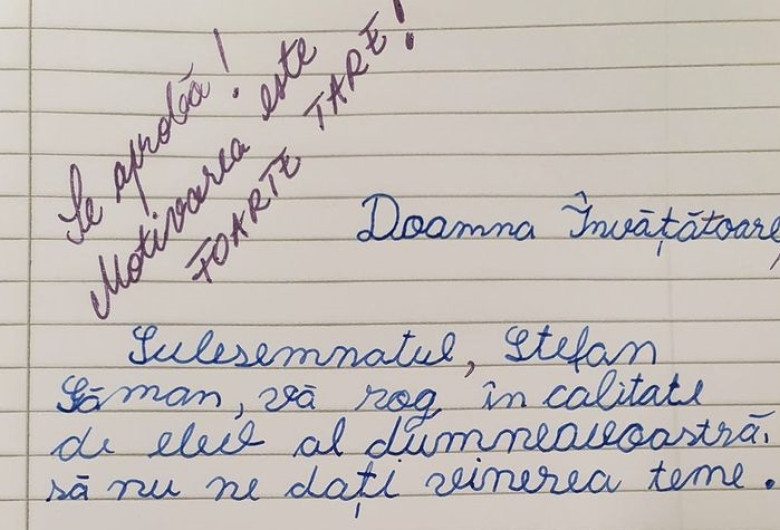 Se aprobă!
Motivarea este
FOARTE TARE!
Doamna Învățătoare,
Sulesemnatul, Ștefan
Șăman, vă rog în calitate
de elev al dumneavoastră,
să nu ne dați veinerea teme.